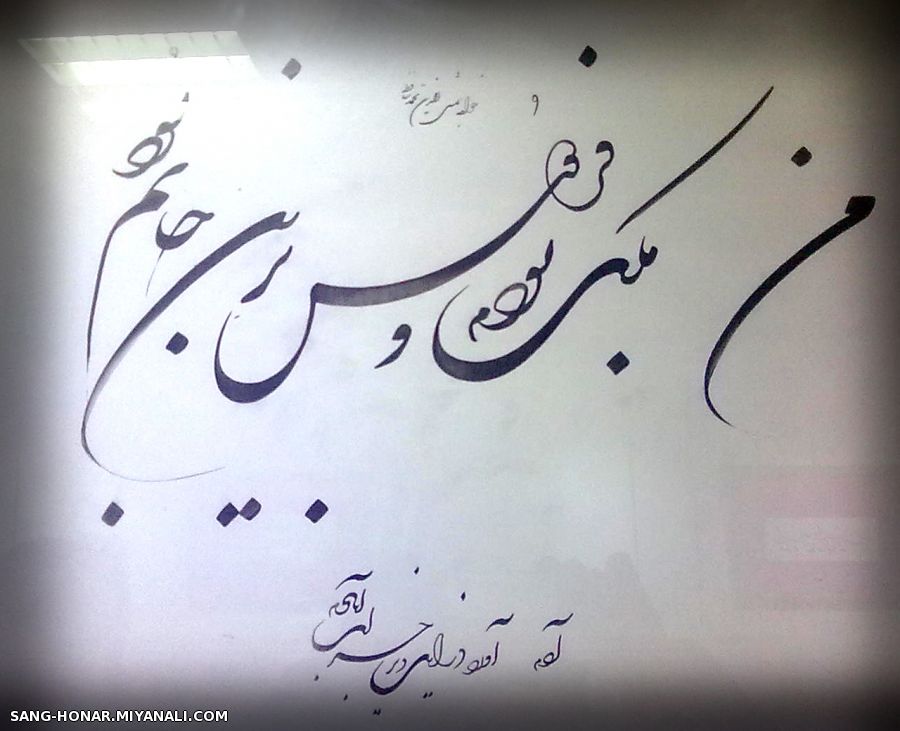 من ملک بودم و فردوس برین جایم بود
آدم آورد در این دیر خراب آبادم
SANG-HONAR.MIYANALI.COM